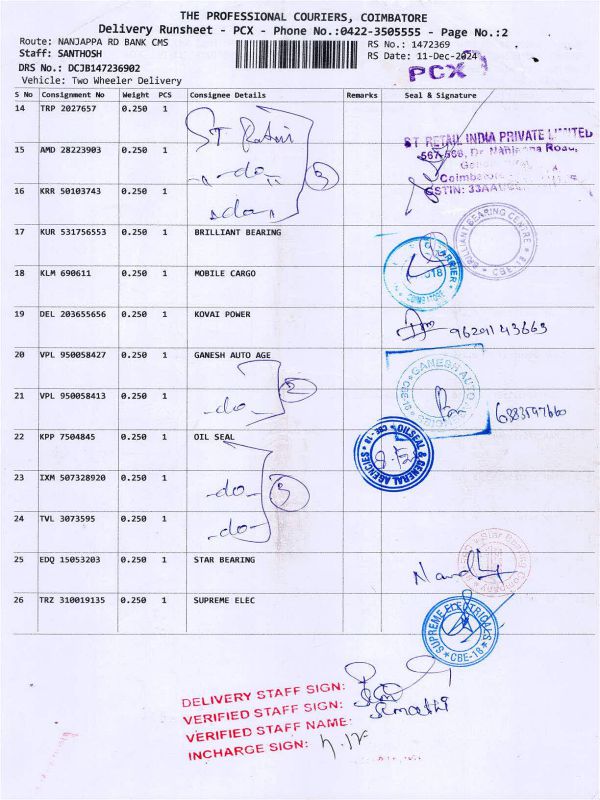 THE PROFESSIONAL COURIERS, COIMBATORE
Delivery Runsheet - PCX - Phone No.:0422-3505555 - Page No.:2
Route: NANJAPPA RD BANK CMS RS No.: 1472369
Staff: SANTHOSH RS Date: 11-Dec-2024
DRS No.: DCJB147236902 PCX
Vehicle: Two Wheeler Delivery
S No Consignment No Weight PCS Consignee Details Remarks Seal & Signature
14 TRP 2027657 0.250 1 ST
ST RETAIL INDIA PRIVATE LIMITED
15 AMD 28223903 0.250 1 -do- 3
Coimbatore
GSTIN: 33AA
16 KRR 50103743 0.250 1 -do-
17 KUR 531756553 0.250 1 BRILLIANT BEARING BRILLIANT BEARING CENTRE CBE-18
18 KLM 690611 0.250 1 MOBILE CARGO COIMBATORE
19 DEL 203655656 0.250 1 KOVAI POWER
20 VPL 950058427 0.250 1 GANESH AUTO AGE GANESH AUTO CBE-18
21 VPL 950058413 0.250 1 -do- 2
22 KPP 7504845 0.250 1 OIL SEAL OILSEAL & GENERAL AGENCIES CBE-18
23 IXM 507328920 0.250 1 -do- 3
24 TVL 3073595 0.250 1 -do-
25 EDQ 15053203 0.250 1 STAR BEARING Star Bearing Company
26 TRZ 310019135 0.250 1 SUPREME ELEC SUPREME ELECTRICALS CBE-18
DELIVERY STAFF SIGN:
VERIFIED STAFF SIGN:
VERIFIED STAFF NAME:
INCHARGE SIGN: